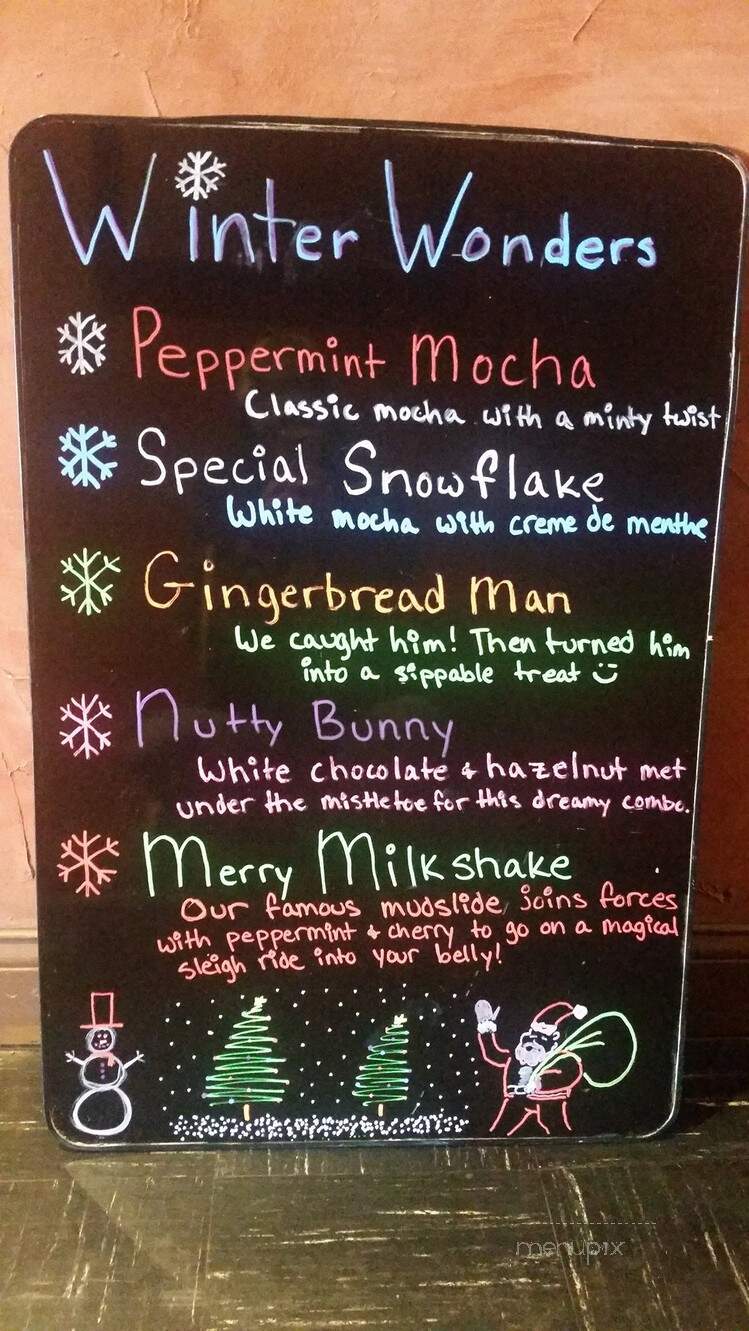 Winter Wonders
Peppermint Mocha
Classic mocha with a minty twist
Special Snowflake
White mocha with creme de menthe
Gingerbread Man
We caught him! Then turned him
into a sippable treat :)
Nutty Bunny
White chocolate & hazelnut met
under the mistletoe for this dreamy combo.
Merry Milkshake
Our famous mudslide joins forces
with peppermint & cherry to go on a magical
sleigh ride into your belly!
menupix